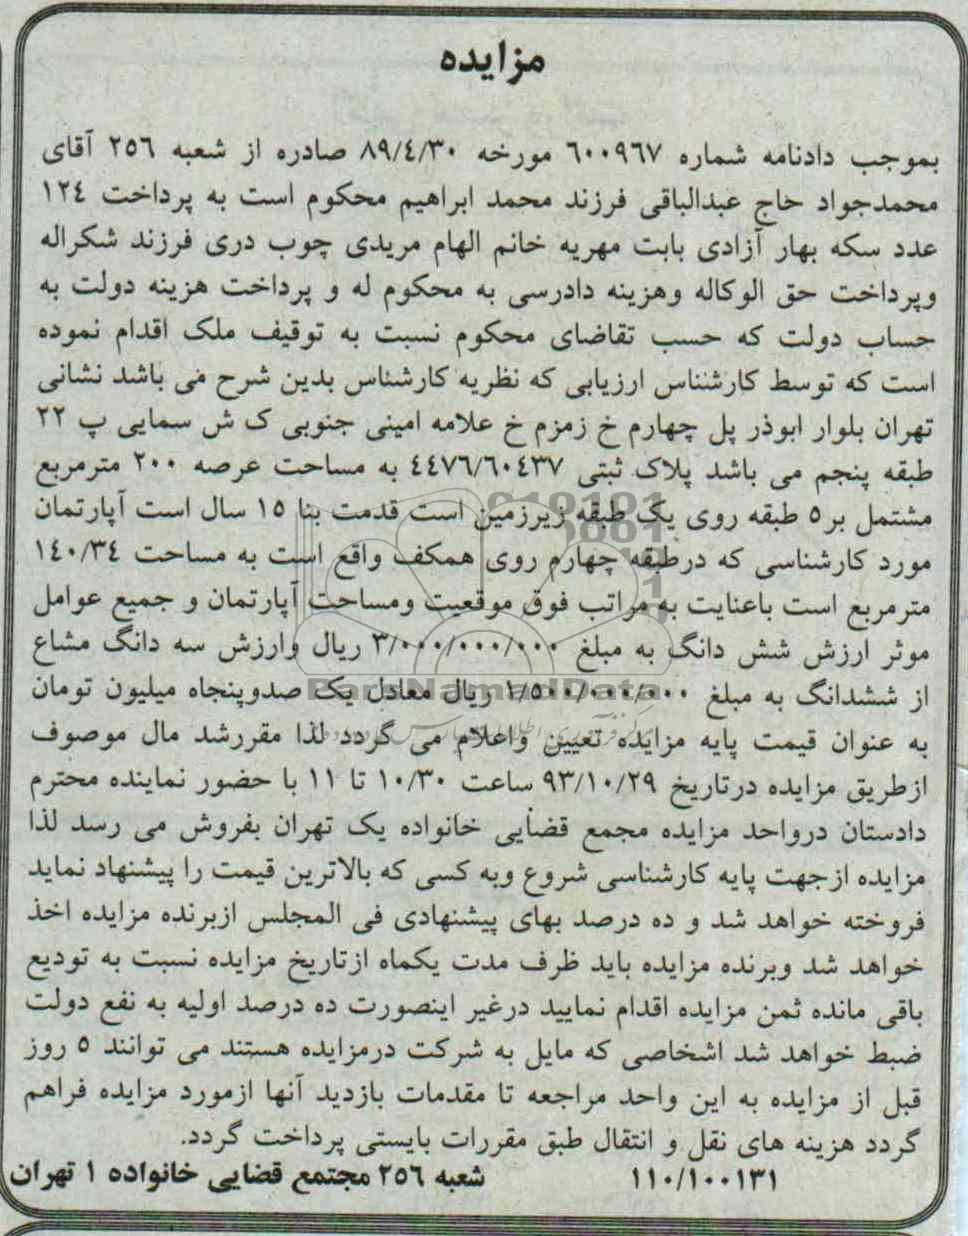 مزایده
بموجب دادنامه شماره ۶۰۰۹۶۷ مورخه ۸۹/٤/۳۰ صادره از شعبه ۲۵٦ آقای
محمدجواد حاج عبدالباقی فرزند محمد ابراهیم محکوم است به پرداخت ۱۲٤
عدد سکه بهار آزادی بابت مهریه خانم الهام مریدی چوب دری فرزند شکراله
وپرداخت حق الوکاله وهزینه دادرسی به محکوم له و پرداخت هزینه دولت به
حساب دولت که حسب تقاضای محکوم نسبت به توقیف ملک اقدام نموده
است که توسط کارشناس ارزیابی که نظریه کارشناس بدین شرح می باشد نشانی
تهران بلوار ابوذر پل چهارم خ زمزم خ علامه امینی جنوبی ک ش سمایی پ ۲۲
طبقه پنجم می باشد پلاک ثبتی ٤٤۷٦/٦۰٤۳۷ به مساحت عرصه ۲۰۰ مترمربع
مشتمل بر۵ طبقه روی یک طبقه زیرزمین است قدمت بنا ۱۵ سال است آپارتمان
مورد کارشناسی که درطبقه چهارم روی همکف واقع است به مساحت ۱٤۰/۳٤
مترمربع است باعنایت به مراتب فوق موقعیت ومساحت آپارتمان و جمیع عوامل
موثر ارزش شش دانگ به مبلغ ۳/۰۰۰/۰۰۰/۰۰۰ ریال وارزش سه دانگ مشاع
از ششدانگ به مبلغ ۱/۵۰۰/۰۰۰/۰۰۰ ریال معادل یک صدوپنجاه میلیون تومان
به عنوان قیمت پایه مزایده تعیین واعلام می گردد لذا مقررشد مال موصوف
ازطریق مزایده درتاریخ ۹۳/۱۰/۲۹ ساعت ۱۰/۳۰ تا ۱۱ با حضور نماینده محترم
دادستان درواحد مزایده مجمع قضایی خانواده یک تهران بفروش می رسد لذا
مزایده ازجهت پایه کارشناسی شروع وبه کسی که بالاترین قیمت را پیشنهاد نماید
فروخته خواهد شد و ده درصد بهای پیشنهادی فی المجلس ازبرنده مزایده اخذ
خواهد شد وبرنده مزایده باید ظرف مدت یکماه ازتاریخ مزایده نسبت به تودیع
باقی مانده ثمن مزایده اقدام نمایید درغیر اینصورت ده درصد اولیه به نفع دولت
ضبط خواهد شد اشخاصی که مایل به شرکت درمزایده هستند می توانند ۵ روز
قبل از مزایده به این واحد مراجعه تا مقدمات بازدید آنها ازمورد مزایده فراهم
گردد هزینه های نقل و انتقال طبق مقررات بایستی پرداخت گردد.
۱۱۰/۱۰۰۱۳۱ شعبه ۲۵٦ مجتمع قضایی خانواده ۱ تهران
ParsNamadData